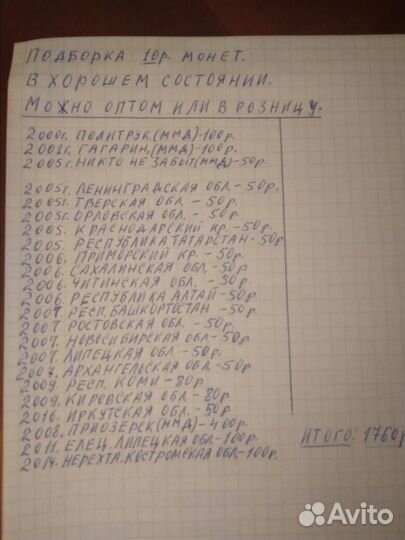 ПОДБОРКА 10р. МОНЕТ.
В ХОРОШЕМ СОСТОЯНИИ.
МОЖНО ОПТОМ ИЛИ В РОЗНИЦУ.
2000г. ПОЛИТРУК.(ММД)-100р.
2001г. ГАГАРИН.(ММД)-100р.
2005г. НИКТО НЕ ЗАБЫТ(ММД)-50р.
2005г. ЛЕНИНГРАДСКАЯ ОБЛ.-50р.
2005г. ТВЕРСКАЯ ОБЛ. - 50р.
2005г. ОРЛОВСКАЯ ОБЛ. - 50р.
2005. КРАСНОДАРСКИЙ КР.-50р.
2005. РЕСПУБЛИКА ТАТАРСТАН-50р
2006. ПРИМОРСКИЙ КР.-50р
2006. САХАЛИНСКАЯ ОБЛ.-50р
2006. ЧИТИНСКАЯ ОБЛ. - 50р
2006. РЕСПУБЛИКА АЛТАЙ-50р
2007. РЕСП. БАШКОРТОСТАН -50р.
2007 РОСТОВСКАЯ ОБЛ. -50р.
2007. НОВОСИБИРСКАЯ ОБЛ-50р
2007. ЛИПЕЦКАЯ ОБЛ.-50р.
2007. АРХАНГЕЛЬСКАЯ ОБЛ.-50р
2009. РЕСП. КОМИ-80р
2009. КИРОВСКАЯ ОБЛ. - 80р
2016. ИРКУТСКАЯ ОБЛ. - 50р
2008. ПРИОЗЕРСК(ММД)-400р.
2011. ЕЛЕЦ. ЛИПЕЦКАЯ ОБЛ-100р.
2014. НЕРЕХТА. КОСТРОМСКАЯ ОБЛ-100р.
ИТОГО: 1760р
Avito